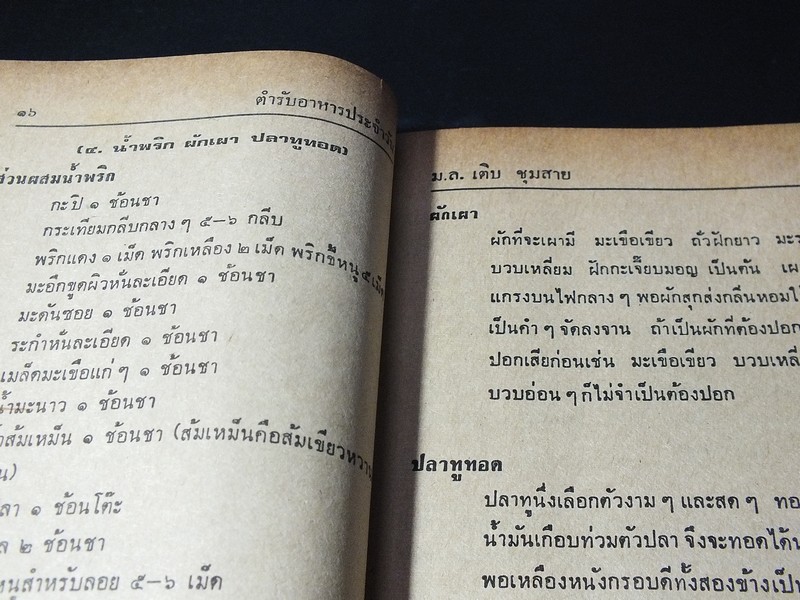 ๑๖
ตำรับอาหารประจำวัน
(๔. น้ำพริก ผักเผา ปลาทูทอด)
ส่วนผสมน้ำพริก
กะปิ ๑ ช้อนชา
กระเทียมกลีบกลาง ๆ ๕-๖ กลีบ
พริกแดง ๑ เม็ด พริกเหลือง ๒ เม็ด พริกขี้หนู ๕ เม็ด
มะอึกขูดผิวหั่นละเอียด ๑ ช้อนชา
มะดันซอย ๑ ช้อนชา
ระกำหั่นละเอียด ๑ ช้อนชา
เมล็ดมะเขือแก่ ๆ ๑ ช้อนชา
น้ำมะนาว ๑ ช้อนชา
ส้มเหม็น ๑ ช้อนชา (ส้มเหม็นคือส้มเขียวหวาน
น)
ลา ๑ ช้อนโต๊ะ
ล ๒ ช้อนชา
หนูสำหรับลอย ๕-๖ เม็ด
ม.ล. เติบ ชุมสาย
ผักเผา
ผักที่จะเผามี มะเขือเขียว ถั่วฝักยาว
บวบเหลี่ยม ฝักกะเจี๊ยบมอญ เป็นต้น
แกรงบนไฟกลาง ๆ พอผักสุกส่งกลิ่นหอม
เป็นคำ ๆ จัดลงจาน ถ้าเป็นผักที่ต้องปอก
ปอกเสียก่อนเช่น มะเขือเขียว บวบเหลี่
บวบอ่อน ๆ ก็ไม่จำเป็นต้องปอก
ปลาทูทอด
ปลาทูนึ่งเลือกตัวงาม ๆ และสด ๆ ทอ
น้ำมันเกือบท่วมตัวปลา จึงจะทอดได้
พอเหลืองหนังกรอบดีทั้งสองข้างเป็น